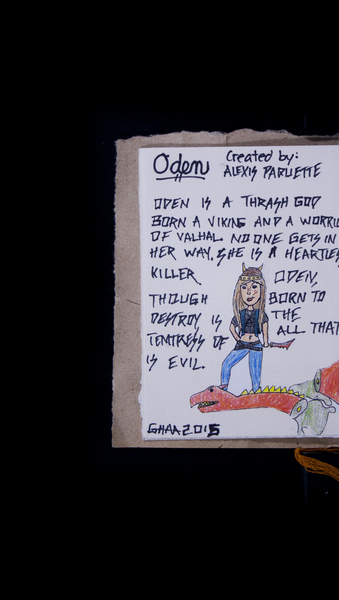 Oden
Created by:
ALEXIS PARUETTE
ODEN IS A THRASH GOD
BORN A VIKING AND A WORRI
OF VALHAL. NO ONE GETS IN
HER WAY, SHE IS A HEARTLES
KILLER ODEN,
THOUGH BORN TO
DESTROY IS THE
TEMTRESS OF ALL THAT
IS EVIL.
GHAA 2015